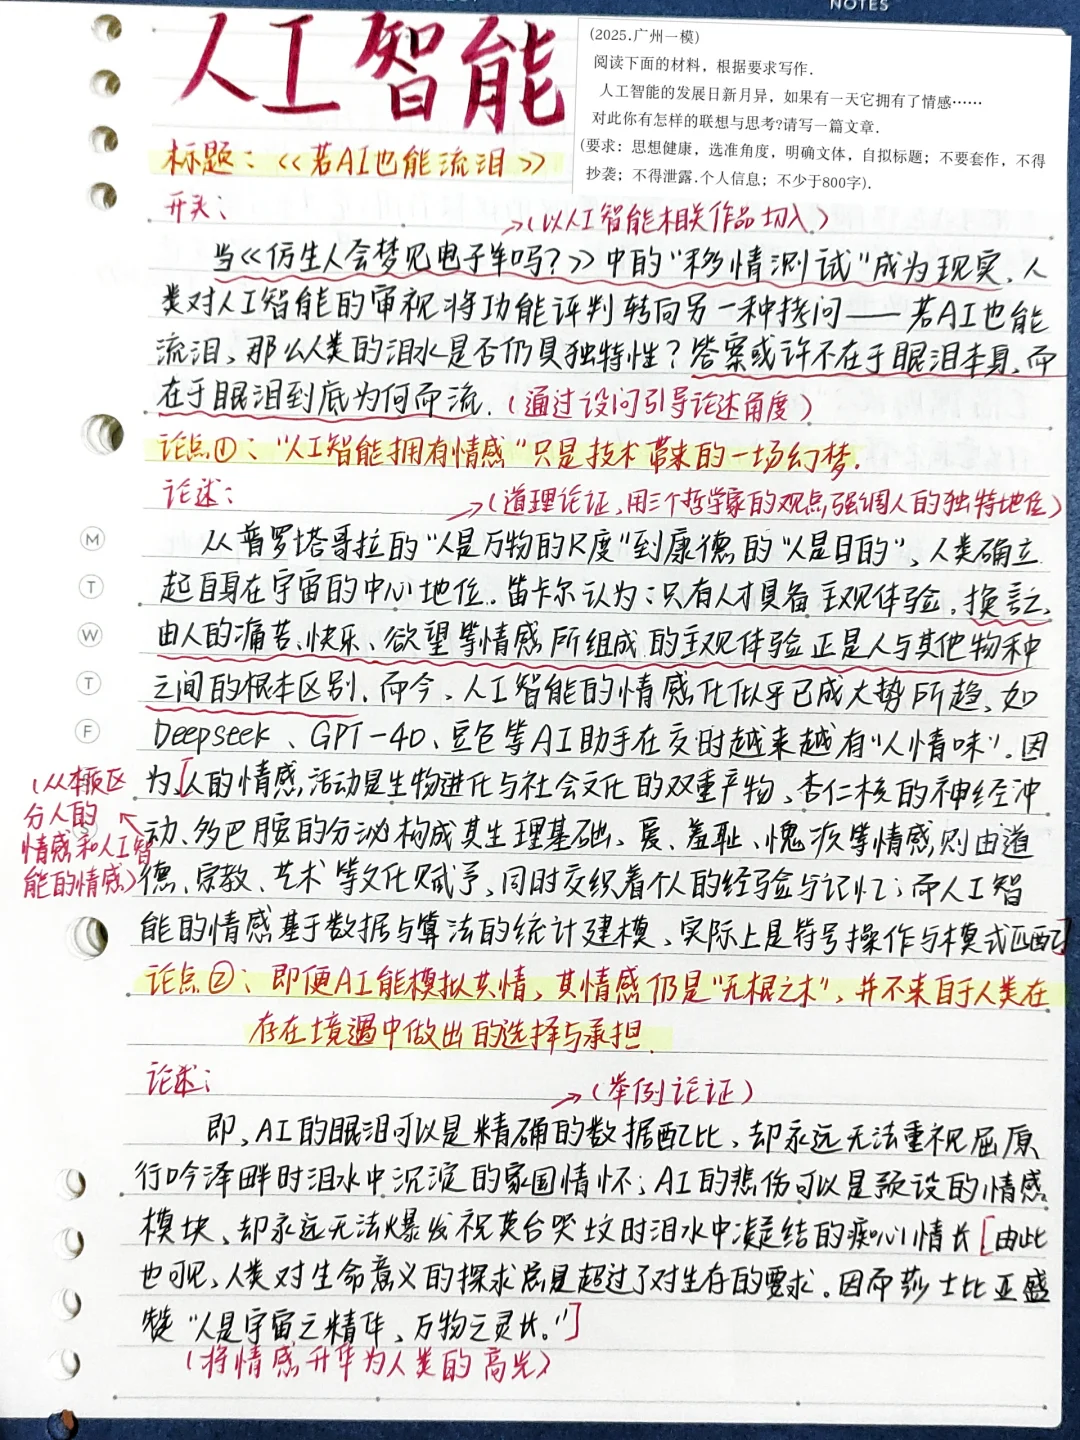 NOTES
人工智能
(2025.广州一模)
阅读下面的材料，根据要求写作.
人工智能的发展日新月异，如果有一天它拥有了情感……
对此你有怎样的联想与思考?请写一篇文章.
(要求：思想健康，选准角度，明确文体，自拟标题；不要套作，不得
抄袭；不得泄露.个人信息；不少于800字).
标题：《若AI也能流泪》
开头：
→(以人工智能相关作品切入)
当《仿生人会梦见电子羊吗？》中的“移情测试”成为现实，人
类对人工智能的审视将功能评判转向另一种拷问——若AI也能
流泪，那么人类的泪水是否仍具独特性？答案或许不在于眼泪本身，而
在于眼泪到底为何而流.(通过设问引导论述角度)
论点①：“人工智能拥有情感”只是技术带来的一场幻梦.
论述：
→(道理论证，用三个哲学家的观点，强调人的独特地位)
从普罗塔哥拉的“人是万物的尺度”到康德的“人是目的”，人类确立
起自身在宇宙的中心地位。笛卡尔认为：只有人才具备主观体验，换言之，
由人的痛苦、快乐、欲望等情感所组成的主观体验正是人与其他物种
之间的根本区别，而今，人工智能的情感化似乎已成大势所趋，如
M
T
W
T
F
Deepseek、GPT-4O、豆包等AI助手在交时越来越有“人情味”。因
为[人的情感活动是生物进化与社会文化的双重产物，杏仁核的神经冲
动、多巴胺的分泌构成其生理基础，爱、羞耻、愧疚等情感则由道
德、宗教、艺术等文化赋予，同时交织着个人的经验与记忆；而人工智
能的情感基于数据与算法的统计建模，实际上是符号操作与模式匹配]
(从本质区
分人的
情感和人工智
能的情感)
论点②：即便AI能模拟共情，其情感仍是“无根之木”，并不来自于人类在
存在境遇中做出的选择与承担.
论述：
→(举例论证)
即，AI的眼泪可以是精确的数据配比，却永远无法重视屈原
行吟泽畔时泪水中沉淀的家国情怀；AI的悲伤可以是预设的情感
模块，却永远无法爆发祝英台哭坟时泪水中凝结的痴心情长[由此
也可见，人类对生命意义的探求总是超过了对生存的要求。因而莎士比亚盛
赞“人是宇宙之精华，万物之灵长。”]
(将情感升华为人类的高光)